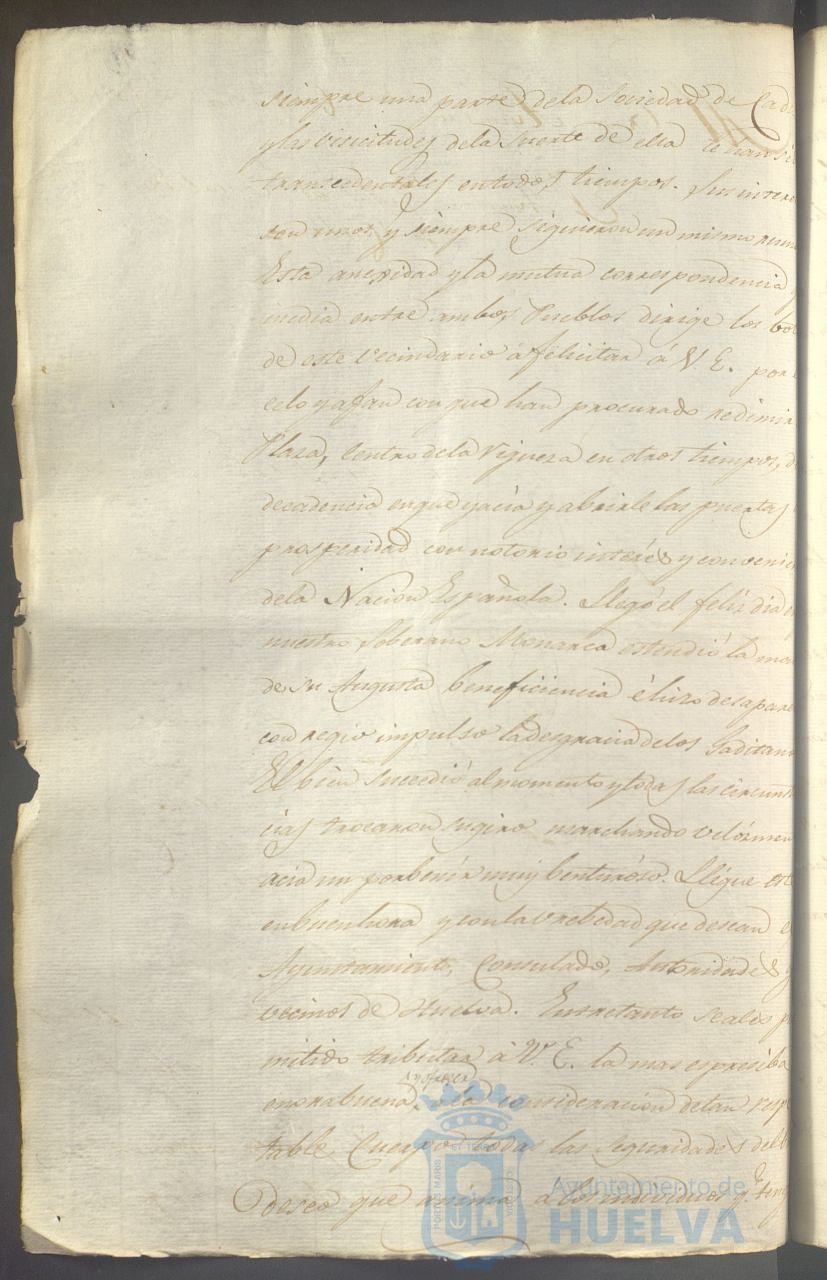 siempre una parte dela Sociedad de Cad
y las vicicitudes dela suerte de ella le han si
transcedentales en todos tiempos. Sus intere
son unos y siempre siguieron un mismo rum
Esta anexidad y la mutua correspondencia
media entre ambos Pueblos dirige los vo
de este Vecindario á felicitar á V. E. por
celo y afan con que han procurado redimir
Plaza, Centro dela riqueza en otros tiempos, d
decadencia en que yacia y abrirle las puertas
prosperidad con notorio interés y convenie
dela Nacion Española. Llegó el feliz dia
nuestro Soberano Monarca estendió la ma
de su Augusta beneficiencia é hizo desapare
con regio impulso la desgracia delos Gaditan
El bien succedió al momento y todas las circuns
cias trocaron su giro marchando velózmen
acia un porbenir muy benturoso. Llegue este
enbuenhora y con la brebedad que desean e
Ayuntamiento, Consulado, Autoridades y
vecinos de Huelva. Entretanto sea les p
mitido tributar á V. E. la mas espresiba
enorabuena, y ofrecer á la consideracion de tan resp
table Cuerpo todas las seguridades del
deseo que anima á los individuos q.e
Ayuntamiento de
HUELVA